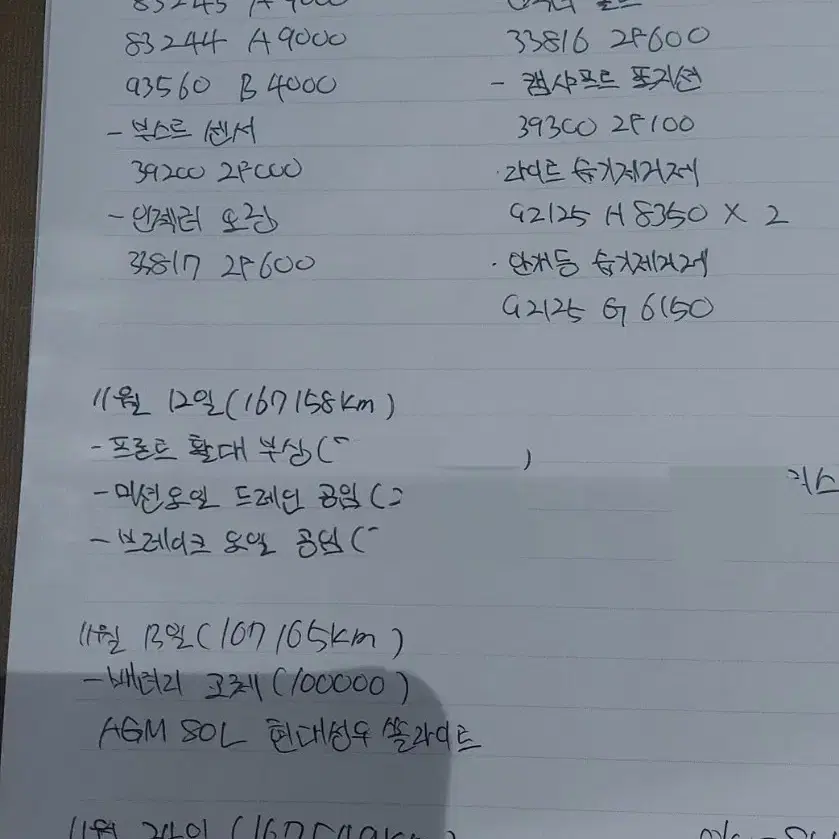 83245 A9000
83244 A9000
93560 B4000
- 부스트 센서
39200 2F000
- 인젝터 오링
33817 2F600
33816 2F600
- 캠샤프트 포지션
39300 2F100
· 라이트 습기제거제
92125 H8350 X 2
· 안개등 습기제거제
92125 G6150
11월 12일(167158km)
- 프론트 활대 부싱( )
- 미션오일 드레인 공임(
- 브레이크 오일 공임(
11월 13일(167165km)
- 배터리 교체(100000)
AGM 80L 현대성우 쏠라이트